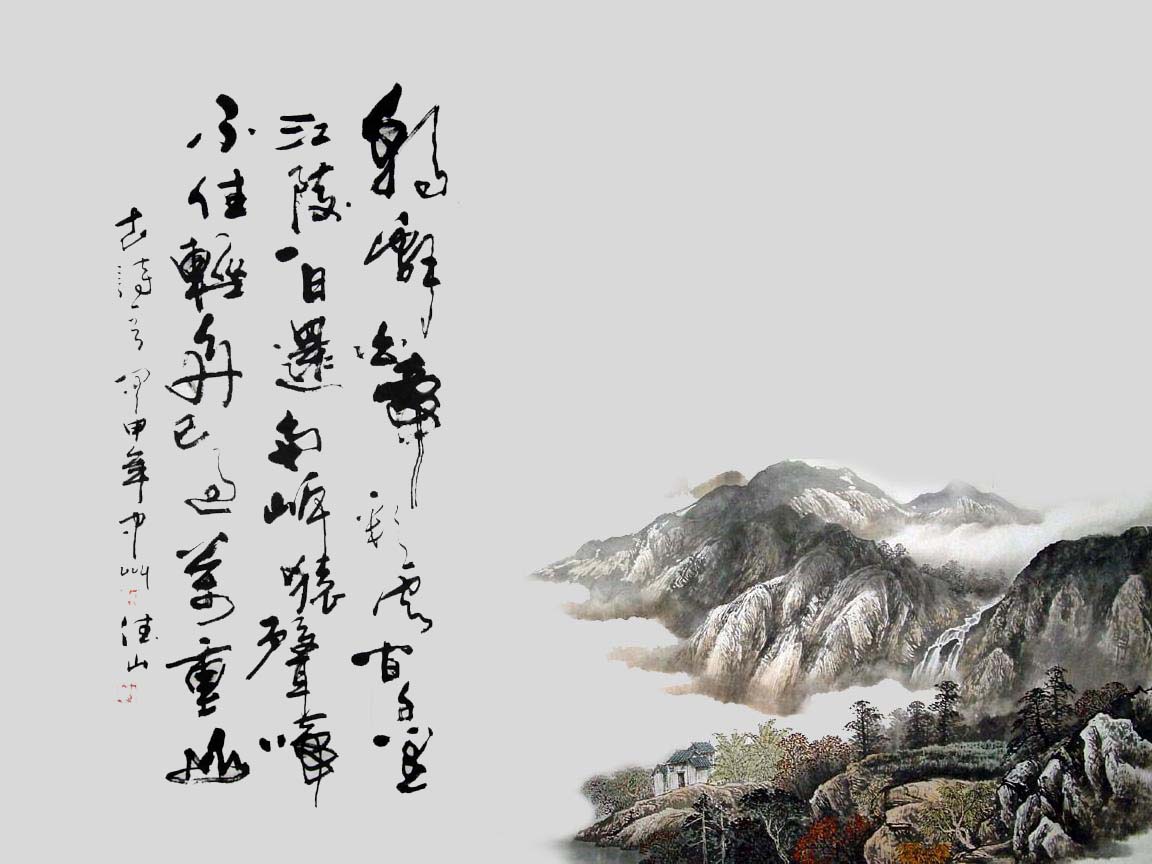 朝辭白帝彩雲間千里
江陵一日還兩岸猿聲啼
不住輕舟已過萬重山
古詩一首 甲年中州 山